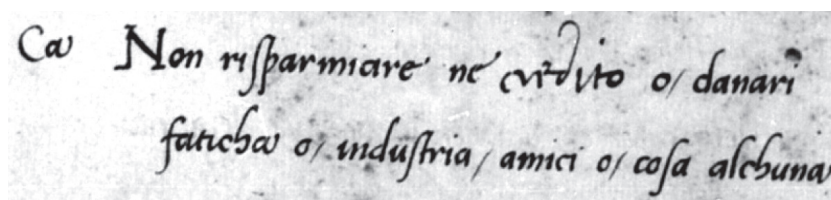 Ca Non risparmiare ne credito o/ danari
faticha o/ industria/ amici o/ cosa alchuna